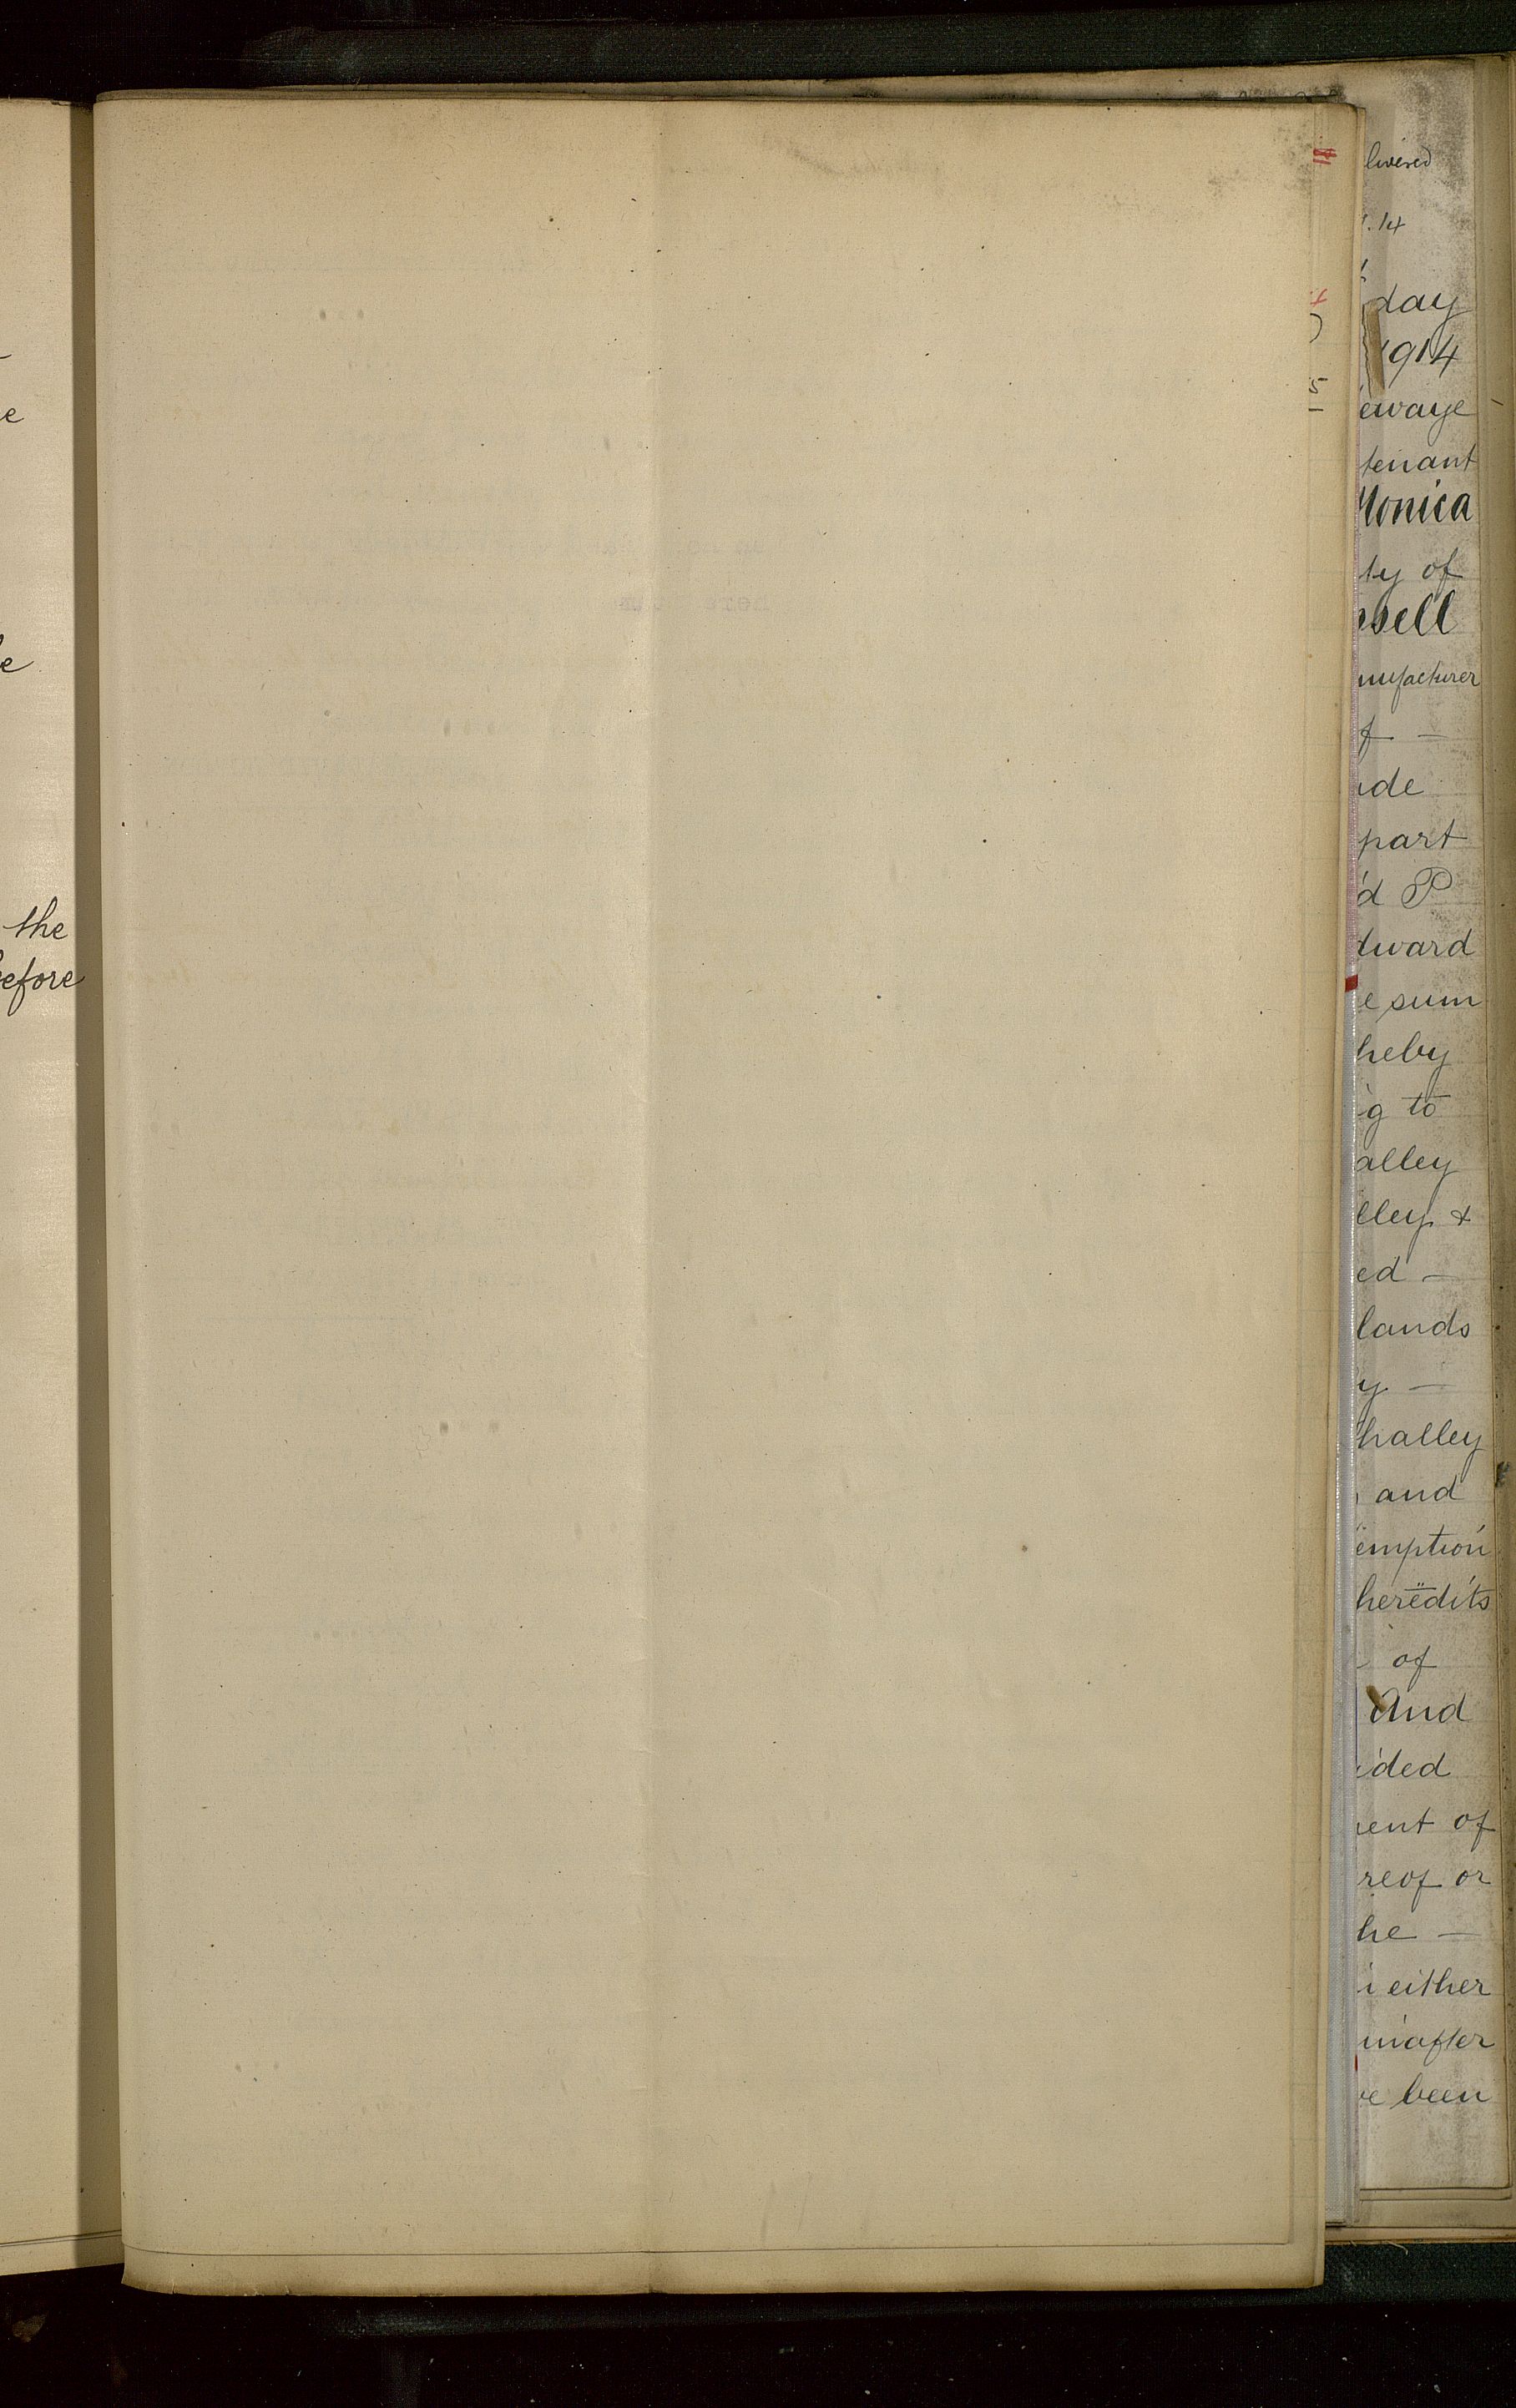 the
efore
livered
.14
day
1914
ewaye
tenant
Monica
ty of
sell
nufacturer
f —
ide
part
d P
dward
e sum
heby
g to
alley
lley &
ed —
lands
y —
halley
and
emption
heredits
of
And
ided
ent of
reof or
he —
either
inafter
e been